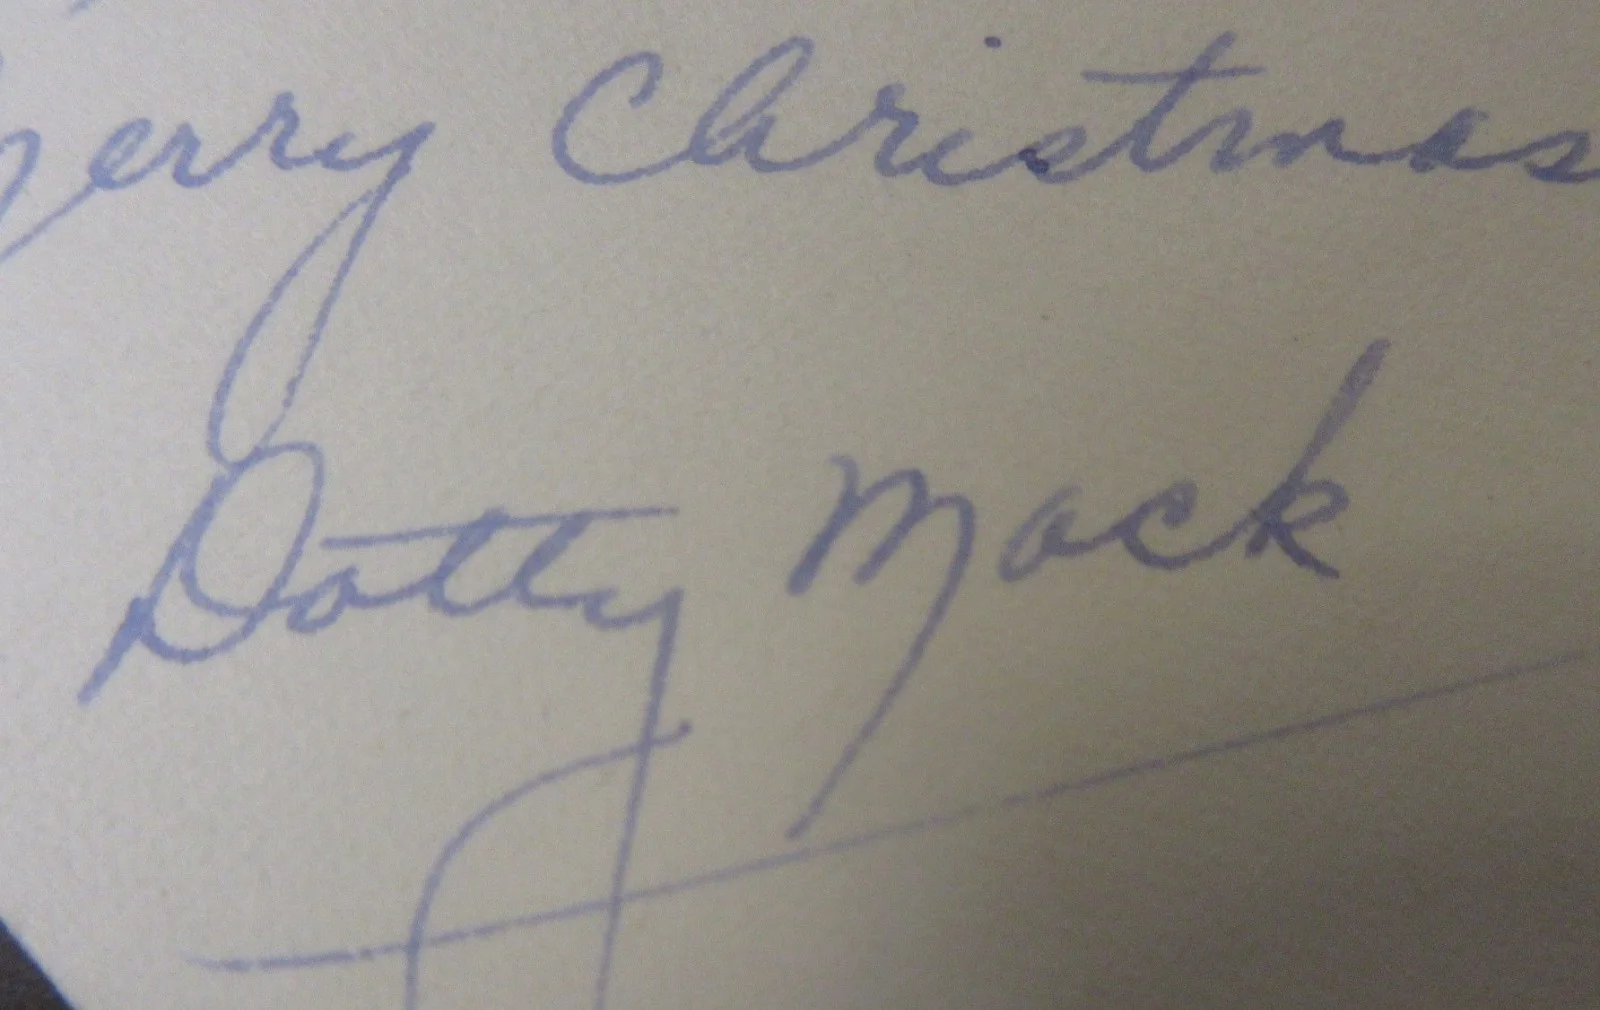 Merry Christmas
Dotty Mack